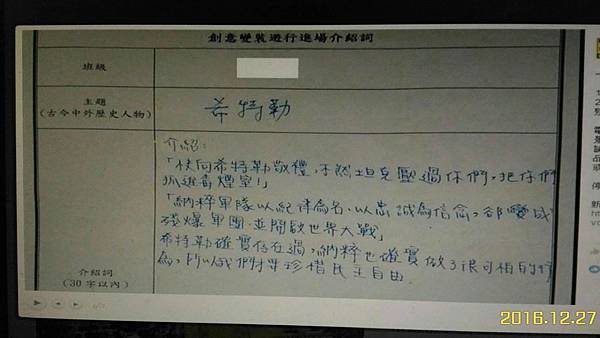 創意變裝遊行進場介紹詞
班級
主題
(古今中外歷史人物)
希特勒
介紹:
「快向希特勒敬禮,不然坦克壓過你們,把你們
抓進毒煙室!」
「納粹軍隊以紀律為名,以忠誠為信念,卻變成
殘爆軍團,並開啟世界大戰」
希特勒確實存在過,納粹也確實做了很可怕的行
為,所以我們才要珍惜民主自由.
介紹詞
(30 字以內)
2016.12.27